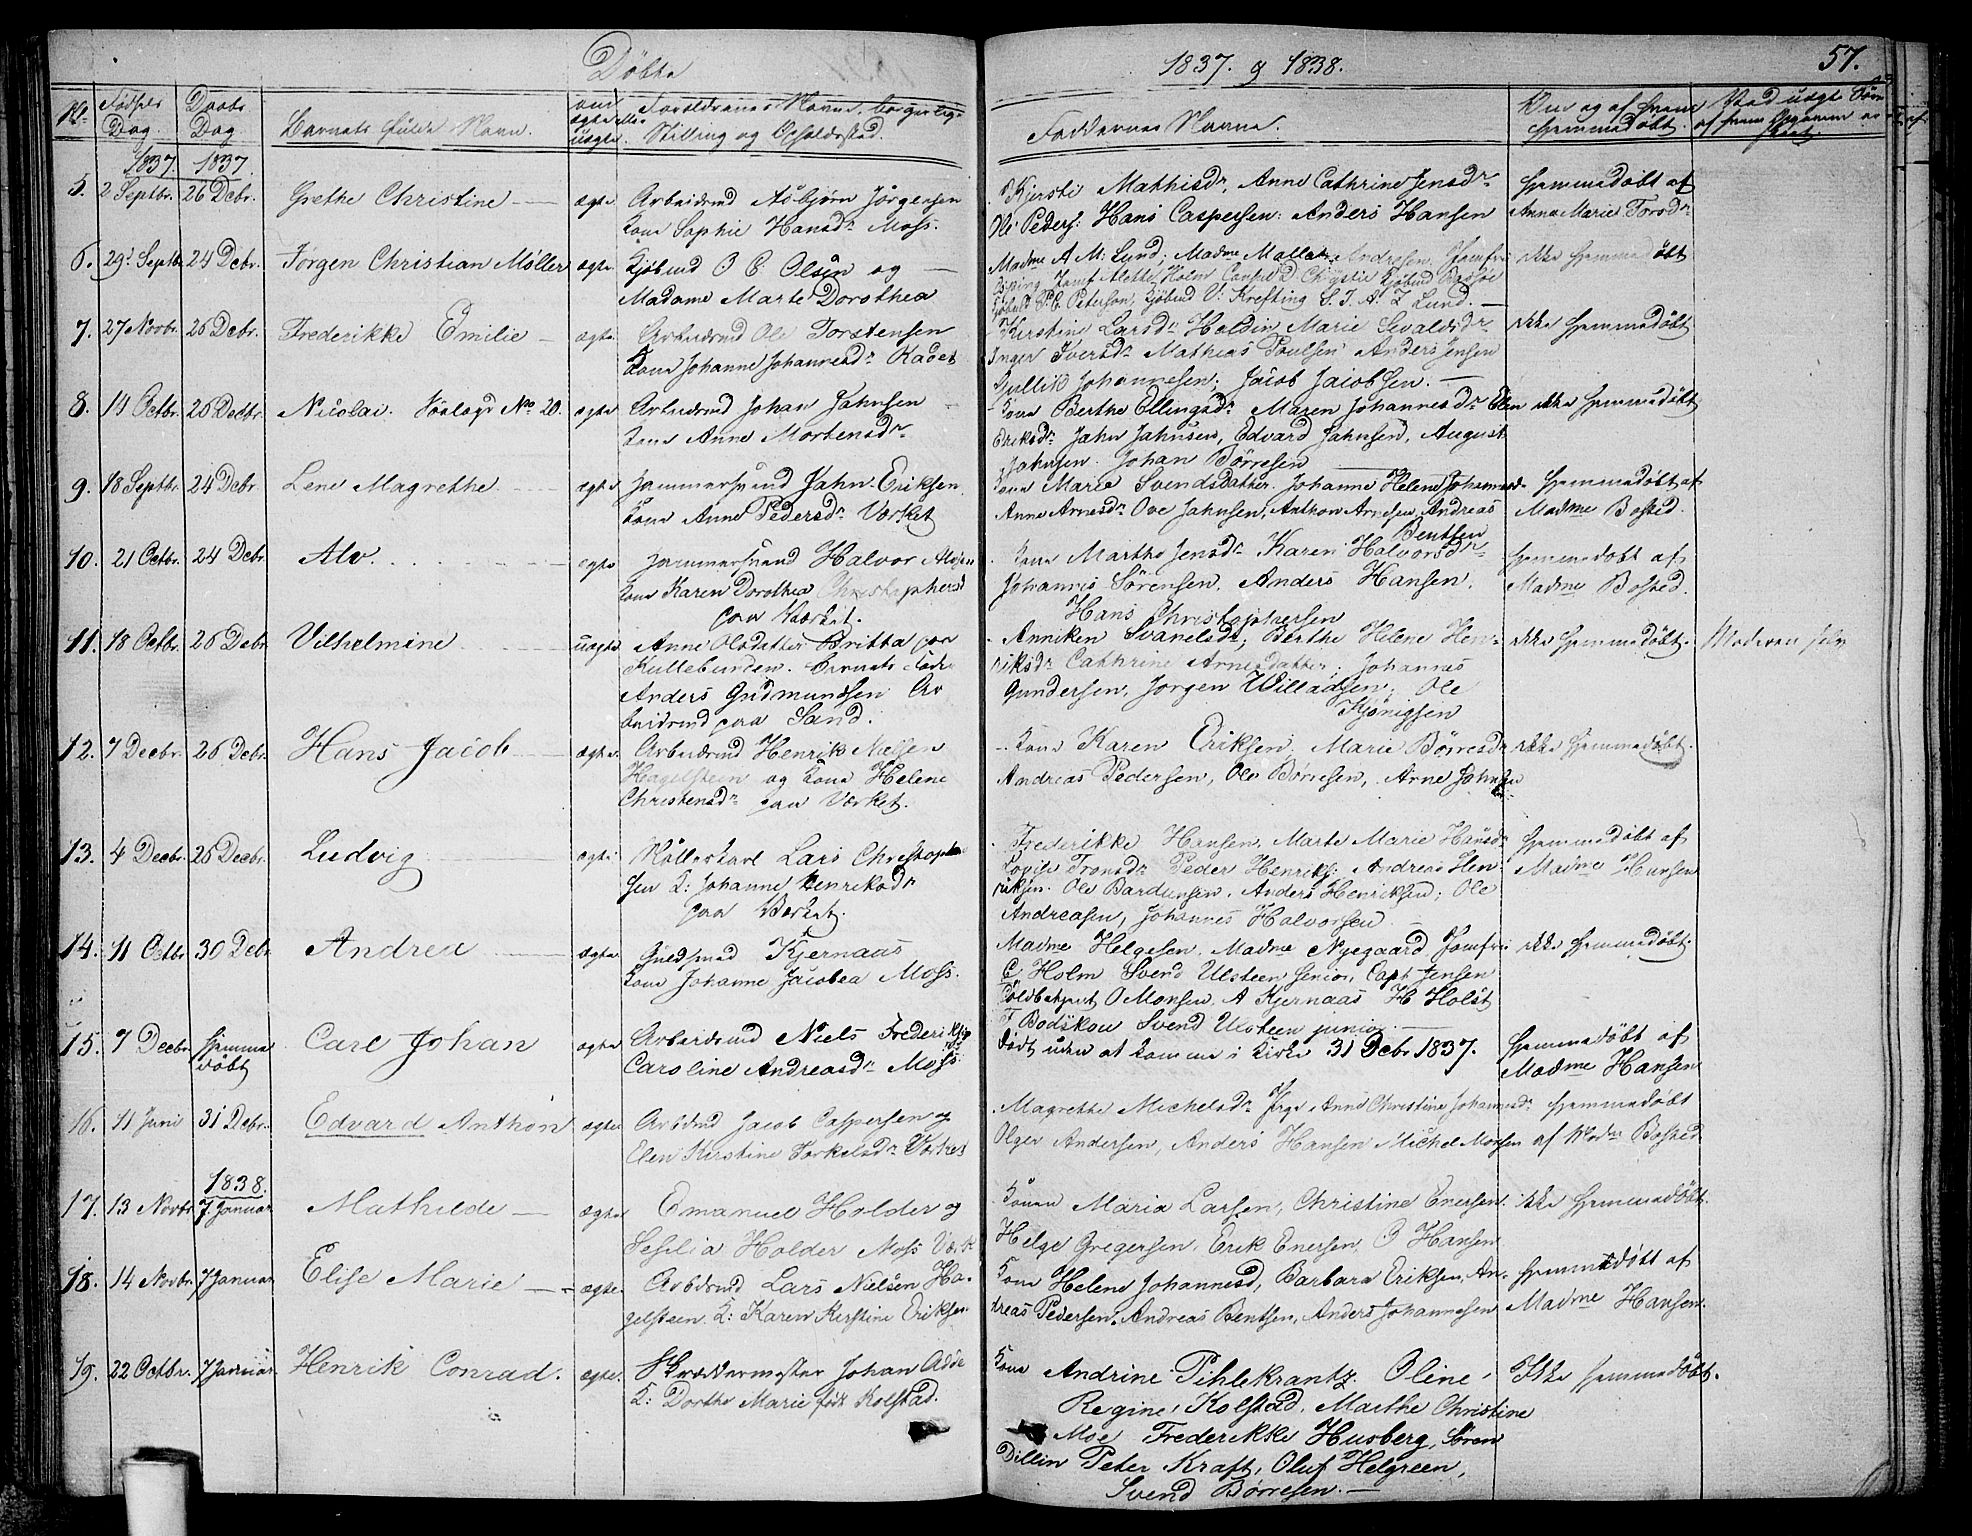 Döbte
1837. og 1838.
57.
No. Födsels Dag. Daabs Dag. Barnets fulde Navn. om ægte eller uægte. Forældrenes Navne, borgerlige Stilling og Opholdssted. Faddernes Navne. Naar og af hvem hjemmedöbt.
1837. 1837.
5. 2 Septbr. 26 Debr. Grethe Christine ægte Arbeidsmd Asbjørn Jörgensen
Kone Sophie Hansdr Moss.
Kirsti Mathisdr, Anne Cathrine Jensdr
Ole Peders: Hans Caspersen: Anders Hansen
hjemmedöbt af
Anne Marie Torsdr
6. 29 Septbr 24 Debr. Jörgen Christian Möller ægte Kjöbmd O C. Olsen og
Madame Marte Dorothea
Madme A M: Lund; Madme Andresen, Jomfru
Jomf Alette Holm
P C Peterson, Kjöbmd V: Krefting S. J. A. L Lund.
ikke hjemmedöbt
7. 27 Novbr. 26 Debr. Frederikke Emilie ægte Arbeidsmd Ole Torstensen
Kone Johanne Johannesdr
Kirstine Larsdr Holdin Marie Sevaldsdr
Inger Iversdr Mathias Poulsen Anders Jensen
Gullik Johannesen; Jacob Jacobsen.
ikke hjemmedöbt
8. 14 Octbr. 26 Decbr. Nicolai. No 20. ægte Arbeidsmd Johan Jahnsen
Kone Anne Mortensdr
Kone Berthe Ellingsdr Maren Johannesdr Elen
Eriksdr Jahn Jahnsen, Edvard Jahnsen, August
Jahnsen. Johan Börresen
ikke hjemmedöbt
9. 18 Septbr. 24 Debr. Lene Magrethe ægte Hammersmd Jahn Eriksen
Kone Anne Pedersdr Værket
Kone Marie Svendsdatter. Johanne Helene Johannesd
Anne Arnesdr Ove Jahnsen, Anthon Arnesen, Andreas
Bentsen
hjemmedöbt af
Madme Bosted.
10. 21 Octbr. 24 Debr Alv. ægte Hammersmd Halvor Alvsen
Kone Karen Dorothea Christophersd
paa Værket.
Kone Marthe Jensdr Karen Halvorsdr
Johannes Sörensen, Anders Hansen,
Hans Christophersen
hjemmedobt af
Madme Bosted.
11. 18 Octbr. 26 Debr Vilhelmine uægte Anne Olsdatter Britta paa
Kullebunden. Barnets Fader
Anders Gudmundsen Ar
beidsmd paa Sand.
Anniken Svanelsdr; Berthe Helene Hen-
riksdr Cathrine Arnesdatter. Johannes
Gundersen, Jorgen Willadsen; Ole
Kjönigsen
ikke hjemmedöbt. Moderen
12. 7 Decbr. 26 Debr. Hans Jacob ægte. Arbeidsmd Henrik Nielsen
Hagelsteen og Kone Helene
Christensdr paa Værket.
Kone Karen Eriksen. Marie Börresdr
Andreas Pedersen, Ole Börresen, Arne Johnsen
ikke hjemmedöbt.
13. 4 Decbr. 25 Decbr. Ludvig ægte Möllerkarl Lars Christopher
sen K: Johanne Henriksdr
paa Værket.
Frederikke Hansen, Marte Marie Hansdr
Tronsdr Peder Henriks: Andreas Hen
riksen. Ole Bardunsen, Anders Henriksen; Ole
Andreasen, Johannes Halvorsen
hjemmedöbt af
Madme Hansen
14. 11 Octbr 30 Debr Andrea ægte Guldsmd Kjernaas
Kone Johanne Jacobea Moss.
Madme Helgesen, Madme Nyegaard Jomfru
C Holm Svend Ulsteen senior, Capt Jensen
Toldbetjent O Monsen, A Kjernaas H Holst
T Bodskou Svend Ulsteen junior.
ikke hjemmedöbt.
15. 7 Decbr hjemme
döbt Carl Johan ægte Arbeidsmd Niels Frederiksen
Caroline Andreasdr Moss
Dödt uden at komme i Kirke 31 Debr 1837.
hjemmedöbt af
Madme Hansen
16. 11 Juni 31 Debr. Edvard Anthon ægte Arbdmd Jacob Caspersen og
Elen Kirstine Torkelsdr Værket
Magrethe Michelsdr Anne Christine Johannesdr
Olger Andersen, Anders Hansen Michel Monsen
hjemmedöbt
af Madme Bosted
1838.
17. 13 Novbr 7 Januar Mathilde ægte Emanuel Holder og
Sesilia Holder Moss Værk
Konen Maria Larsen, Christine Enersen.
Helge Gregersen, Erik Enersen. O Hansen
ikke hjemmedöbt.
18. 14 Novbr. 7 Januar Elise Marie ægte. Arbdsmd Lars Nielsen Ha-
gelsteen K: Karen Kirstine Eriksen
Kone Helene Johannesd, Barbara Eriksen, An-
dreas Pedersen, Andreas Bentsen, Anders Johannesen
hjemmedöbt af
Madme Hansen.
19. 22 Octbr. 7 Januar Henrik Conrad. ægte. Skreddermester Johan Adde
K: Dorthe Marie födt Kolstad.
Kone Andrine Pihlekrantz. Oline
Regine Kolstad, Marthe Christine
Moe Frederikke Husberg, Sören
Dillin Peter Kraft, Oluf Helgreen,
Svend Börresen.
Ikke hjemmedöbt.